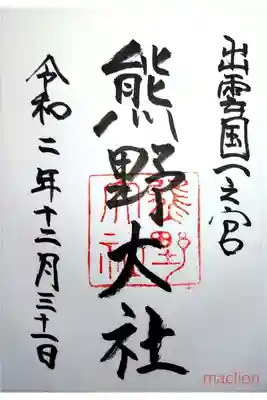 出雲国一之宮
熊野大社
令和二年十二月三十一日
熊野
大社
maclion